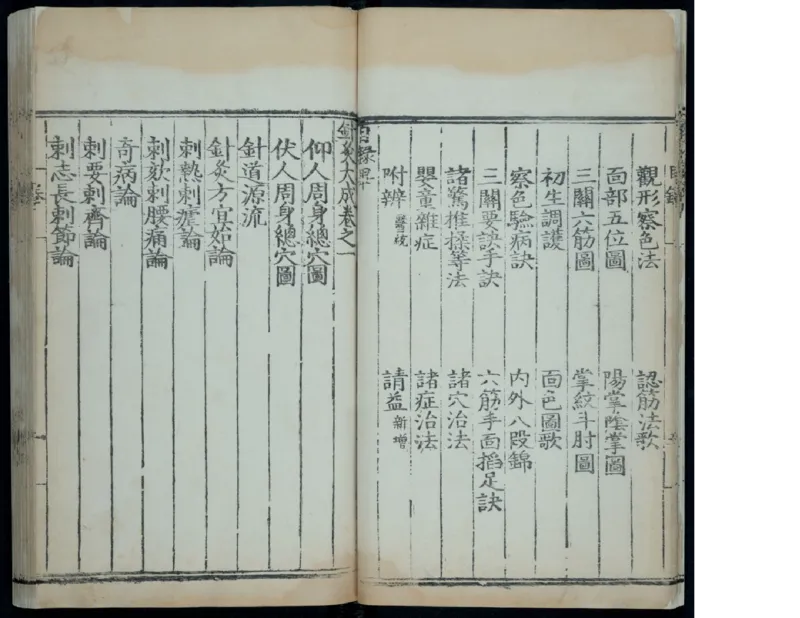 觀形察色法
認筋法歌
面部五位圖
陽掌陰掌圖
三關六筋圖
掌紋斗肘圖
初生調護
面色圖歌
察色驗病訣
內外八段錦
三關要訣手訣
六筋手面掐足訣
諸驚推揉等法
諸穴治法
嬰童雜症
諸症治法
附辨
請益 新增
目錄畢
針灸大成卷之一
仰人周身總穴圖
伏人周身總穴圖
針道源流
針灸方宜始論
刺熱刺瘧論
刺欬刺腰痛論
奇病論
刺要刺齊論
刺志長刺節論